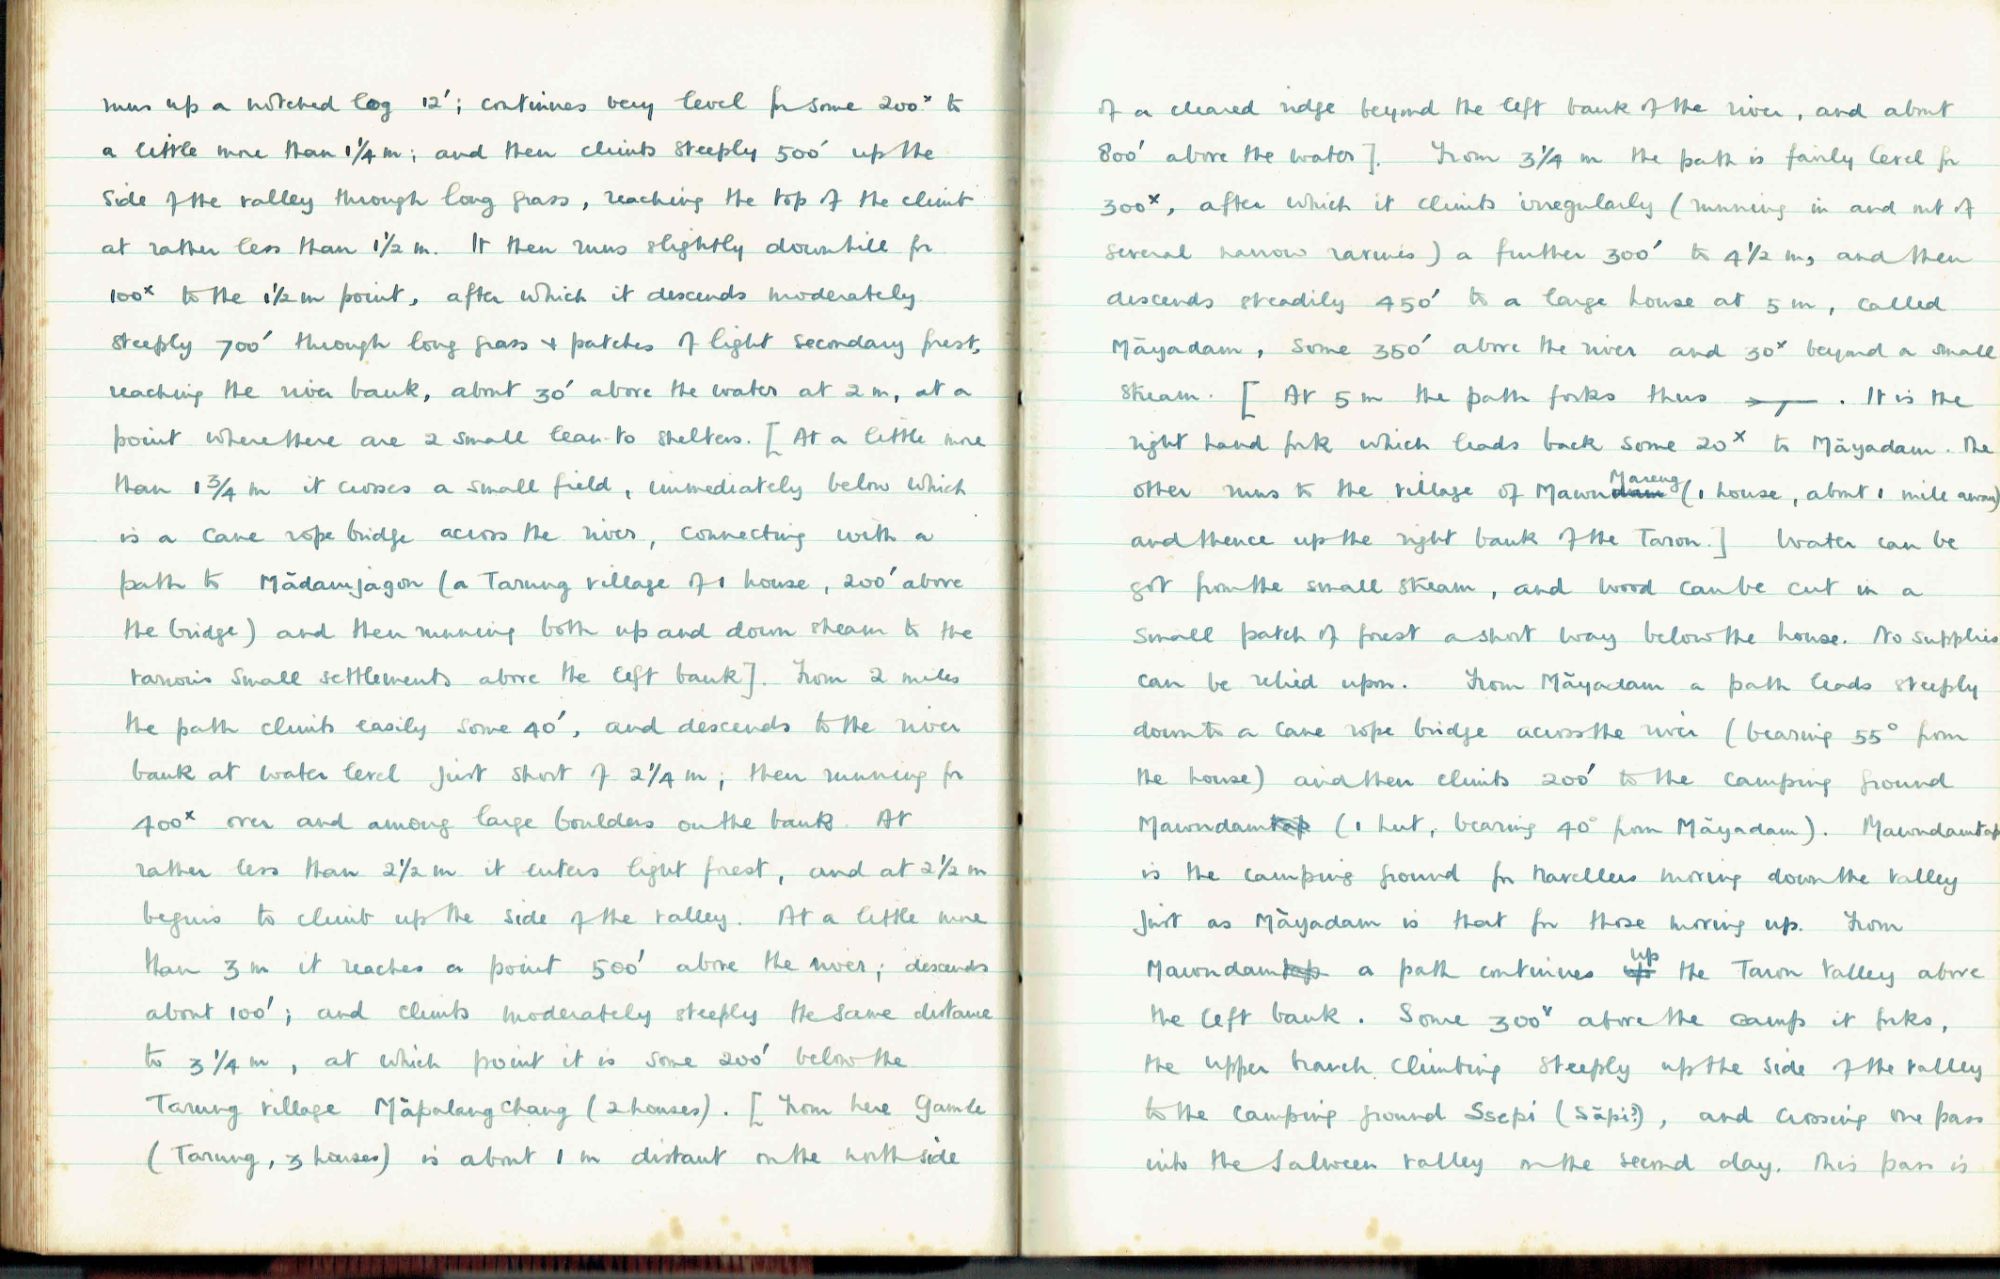 runs up a notched log 12'; continues very level for some 200ˣ to
a little more than 1¼ m; and then climbs steeply 500' up the
side of the valley through long grass, reaching the top of the climb
at rather less than 1½ m. It then runs slightly downhill for
100ˣ to the 1½ m point, after which it descends moderately
steeply 700' through long grass + patches of light secondary forest,
reaching the river bank, about 30' above the water at 2 m, at a
point where there are 2 small lean-to shelters. [At a little more
than 1¾ m it crosses a small field, immediately below which
is a cane rope bridge across the river, connecting with a
path to Mādamjagon (a Tarung village of 1 house, 200' above
the bridge) and then running both up and down stream to the
various small settlements above the left bank]. From 2 miles
the path climbs easily some 40', and descends to the river
bank at water level just short of 2¼ m; then running for
400ˣ over and among large boulders on the bank. At
rather less than 2½ m it enters light forest, and at 2½ m
begins to climb up the side of the valley. At a little more
than 3 m it reaches a point 500' above the river; descends
about 100'; and climbs moderately steeply the same distance
to 3¼ m, at which point it is some 200' below the
Tarung village Māpalangchang (2 houses). [From here Gamle
(Tarung, 3 houses) is about 1 m distant on the north side
of a cleared ridge beyond the left bank of the river, and about
800' above the water]. From 3¼ m the path is fairly level for
300ˣ, after which it climbs irregularly (running in and out of
several narrow ravines) a further 300' to 4½ m, and then
descends steadily 450' to a large house at 5 m, called
Māyadam, some 350' above the river and 30ˣ beyond a small
stream. [At 5 m the path forks thus . It is the
right hand fork which leads back some 20ˣ to Māyadam. The
other runs to the village of Mawndam Mareng (1 house, about 1 mile away)
and thence up the right bank of the Taron.] Water can be
got from the small stream, and wood can be cut in a
small patch of forest a short way below the house. No supplies
can be relied upon. From Māyadam a path leads steeply
down to a cane rope bridge across the river (bearing 55° from
the house) and then climbs 200' to the camping ground
Mawndamtap (1 hut, bearing 40° from Māyadam). Mawndamtap
is the camping ground for travellers moving down the valley
just as Māyadam is that for those moving up. From
Mawndamtap a path continues up up the Taron valley above
the left bank. Some 300ˣ above the camp it forks,
the upper branch climbing steeply up the side of the valley
to the camping ground Ssepi (Sāpi?), and crossing one pass
into the Salween valley on the second day. This pass is